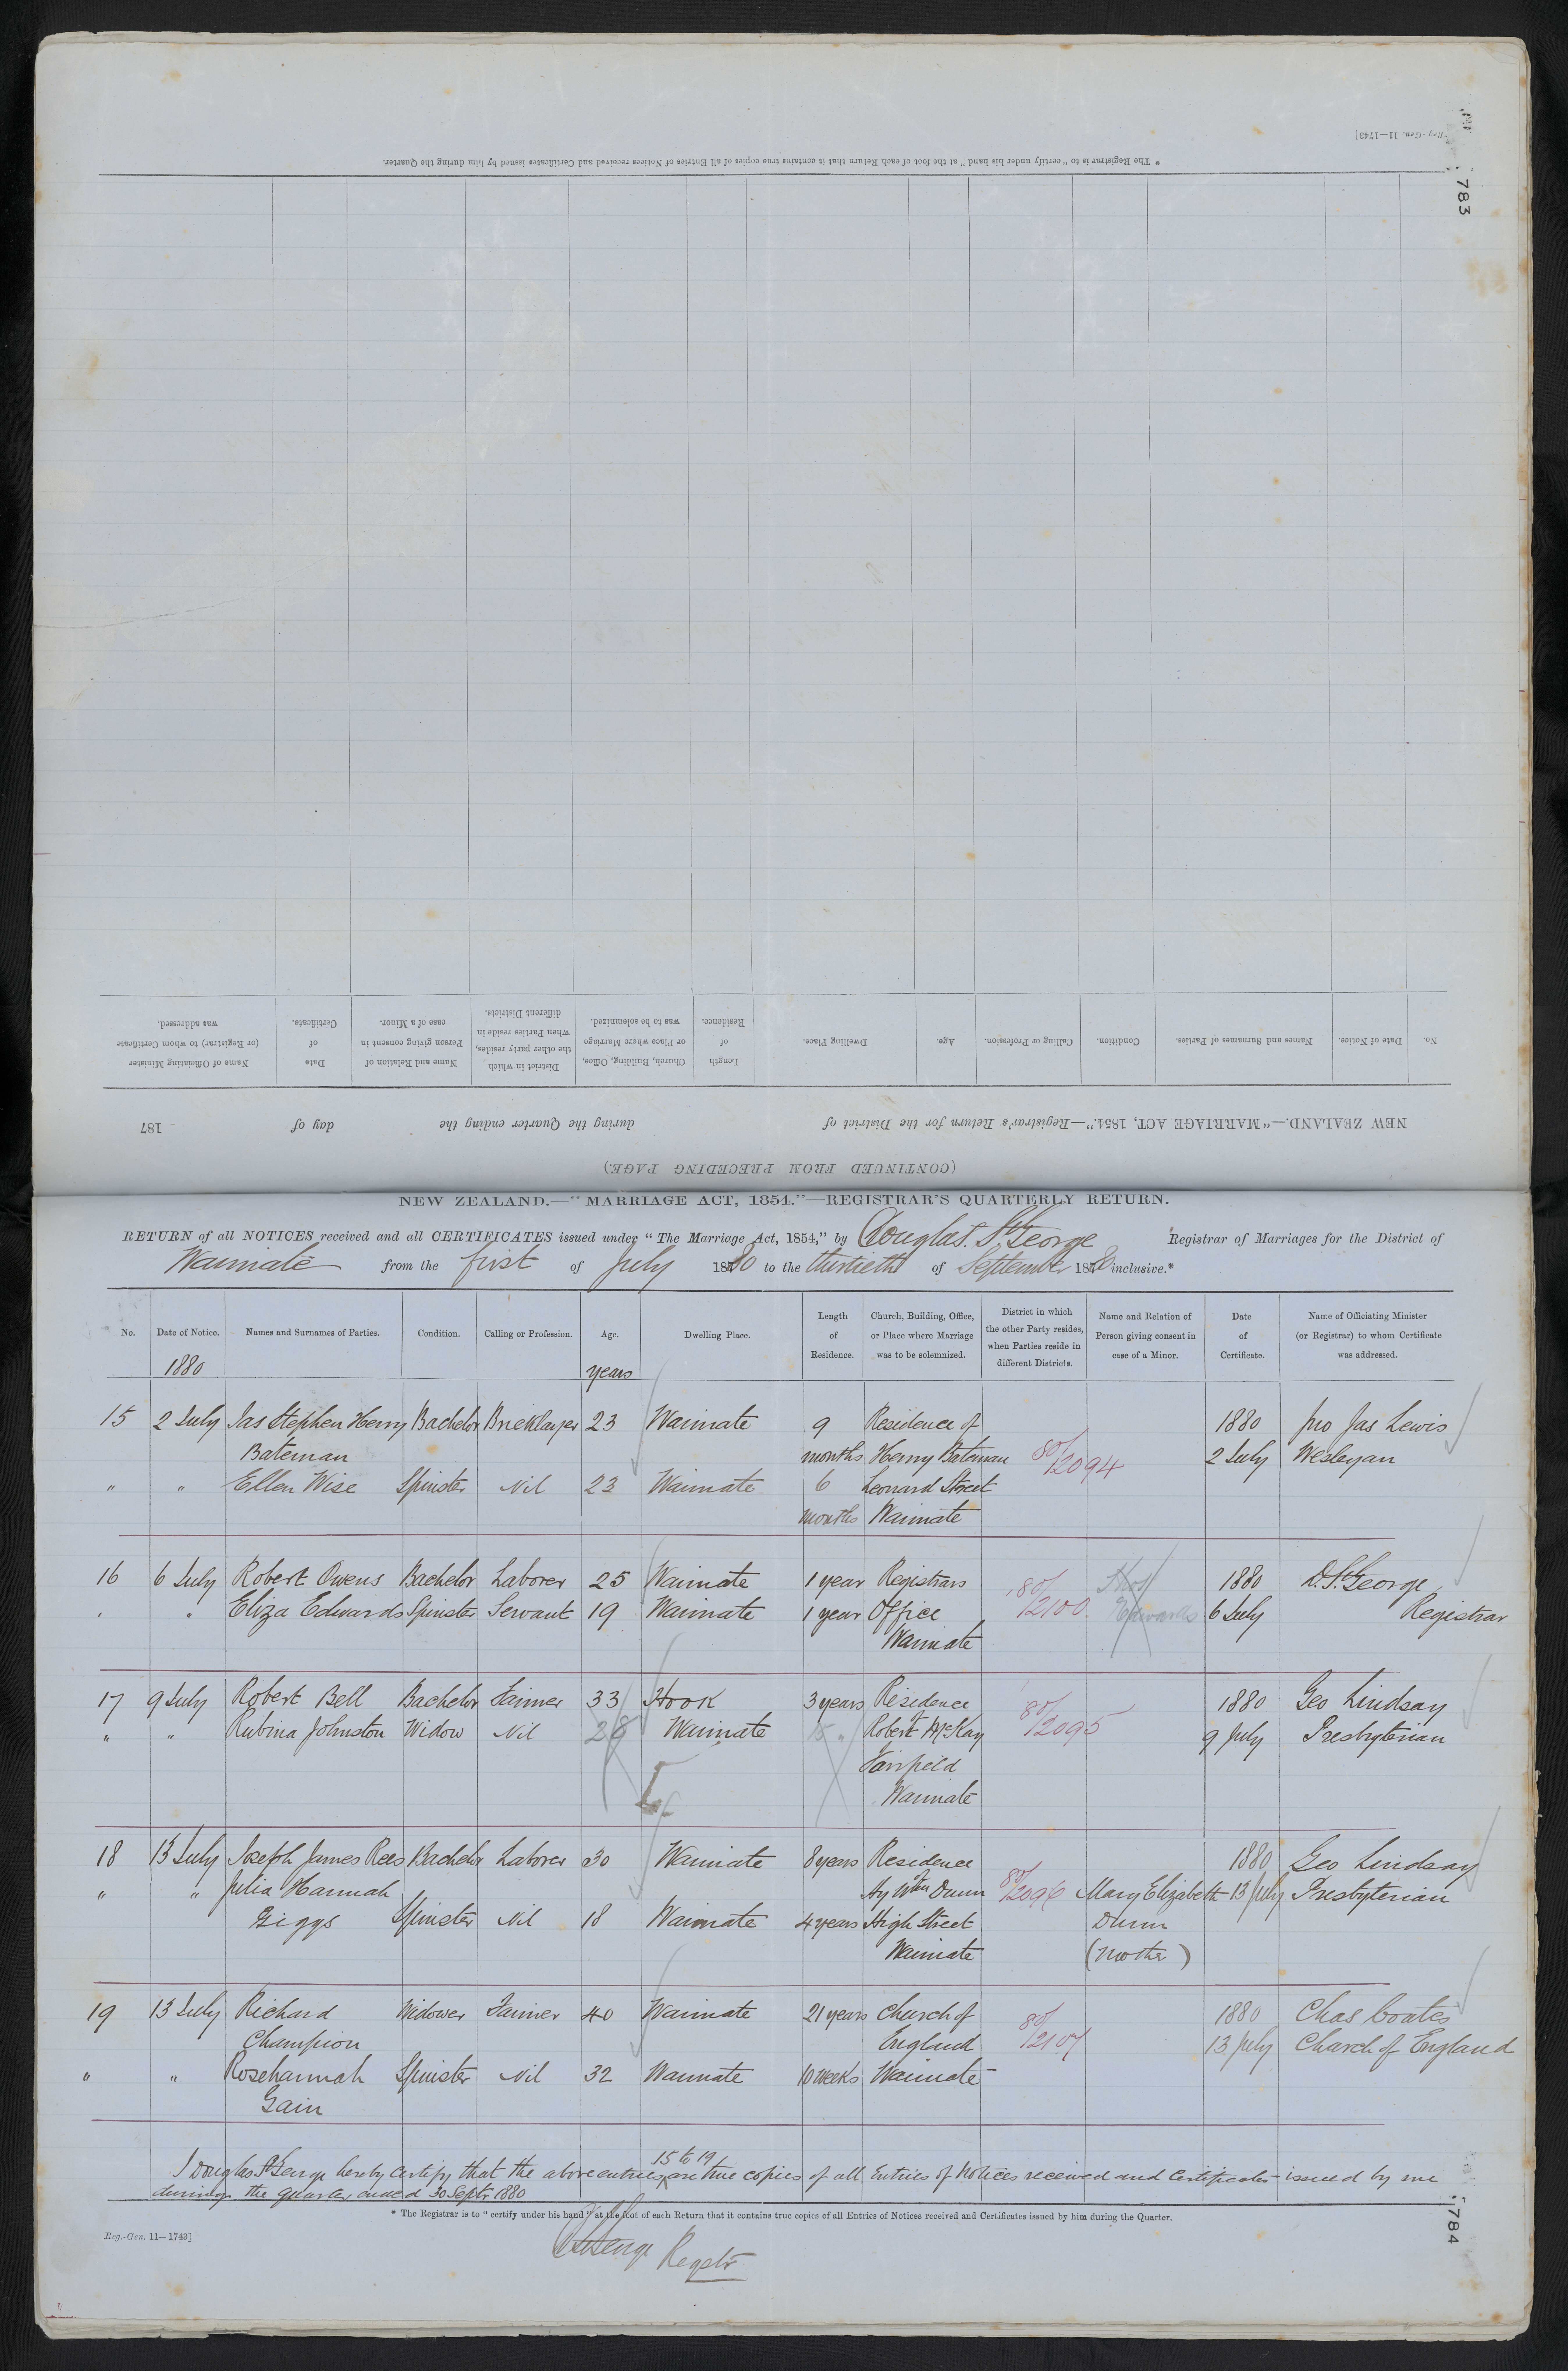 Reg.-Gen. 11—1743]
* The Registrar is to "certify under his hand" at the foot of each Return that it contains true copies of all Entries of Notices received and Certificates issued by him during the Quarter.
783
No. Date of Notice. Names and Surnames of Parties. Condition. Calling or Profession. Age. Dwelling Place. Length of Residence. Church, Building, Office, or Place where Marriage was to be solemnized. District in which the other party resides, when Parties reside in different Districts. Name and Relation of Person giving consent in case of a Minor. Date of Certificate. Name of Officiating Minister (or Registrar) to whom Certificate was addressed.
NEW ZEALAND.—"MARRIAGE ACT, 1854."—Registrar's Return for the District of during the Quarter ending the day of 187
(CONTINUED FROM PRECEDING PAGE.)
NEW ZEALAND.—"MARRIAGE ACT, 1854."—REGISTRAR'S QUARTERLY RETURN.
RETURN of all NOTICES received and all CERTIFICATES issued under "The Marriage Act, 1854," by Douglas St George Registrar of Marriages for the District of
Waimate from the first of July 1880 to the thirtieth of September 1880 inclusive.*
No. Date of Notice. Names and Surnames of Parties. Condition. Calling or Profession. Age. Dwelling Place. Length of Residence. Church, Building, Office, or Place where Marriage was to be solemnized. District in which the other Party resides, when Parties reside in different Districts. Name and Relation of Person giving consent in case of a Minor. Date of Certificate. Name of Officiating Minister (or Registrar) to whom Certificate was addressed.
1880 years
15 2 July Jas Stephen Henry Bachelor Bricklayer 23 Waimate 9 Residence of 1880 pro Jas Lewis
Bateman months Henry Bateman 80/2094 2 July Wesleyan
" " Ellen Wise Spinster Nil 23 Waimate 6 Leonard Street
months Waimate
16 6 July Robert Owens Bachelor Laborer 25 Waimate 1 year Registrars 80/2100 Thos 1880 D. St George
" Eliza Edwards Spinster Servant 19 Waimate 1 year Office Edwards 6 July Registrar
Waimate
17 9 July Robert Bell Bachelor Farmer 33 Hook 3 years Residence 80/2095 1880 Geo Lindsay
" " Rubina Johnston Widow Nil 28 Waimate 15 " Robert McKay 9 July Presbyterian
Fairfield
Waimate
18 13 July Joseph James Rees Bachelor Laborer 30 Waimate 8 years Residence 1880 Geo Lindsay
" " Julia Hannah Hy Wm Dunn 80/2096 Mary Elizabeth 13 July Presbyterian
Giggs Spinster Nil 18 Waimate 4 years High Street Dunn
Waimate (Mother)
19 13 July Richard Widower Farmer 40 Waimate 21 years Church of 80/2107 1880 Chas Coates
Champion England 13 July Church of England
" " Rosehannah Spinster Nil 32 Waimate 10 weeks Waimate
Gain
15 to 19
I Douglas St George hereby certify that the above entries are true copies of all Entries of Notices received and Certificates issued by me
during the quarter ended 30 Septr 1880
* The Registrar is to "certify under his hand" at the foot of each Return that it contains true copies of all Entries of Notices received and Certificates issued by him during the Quarter.
784
Reg.-Gen. 11—1743]
D St George Registr